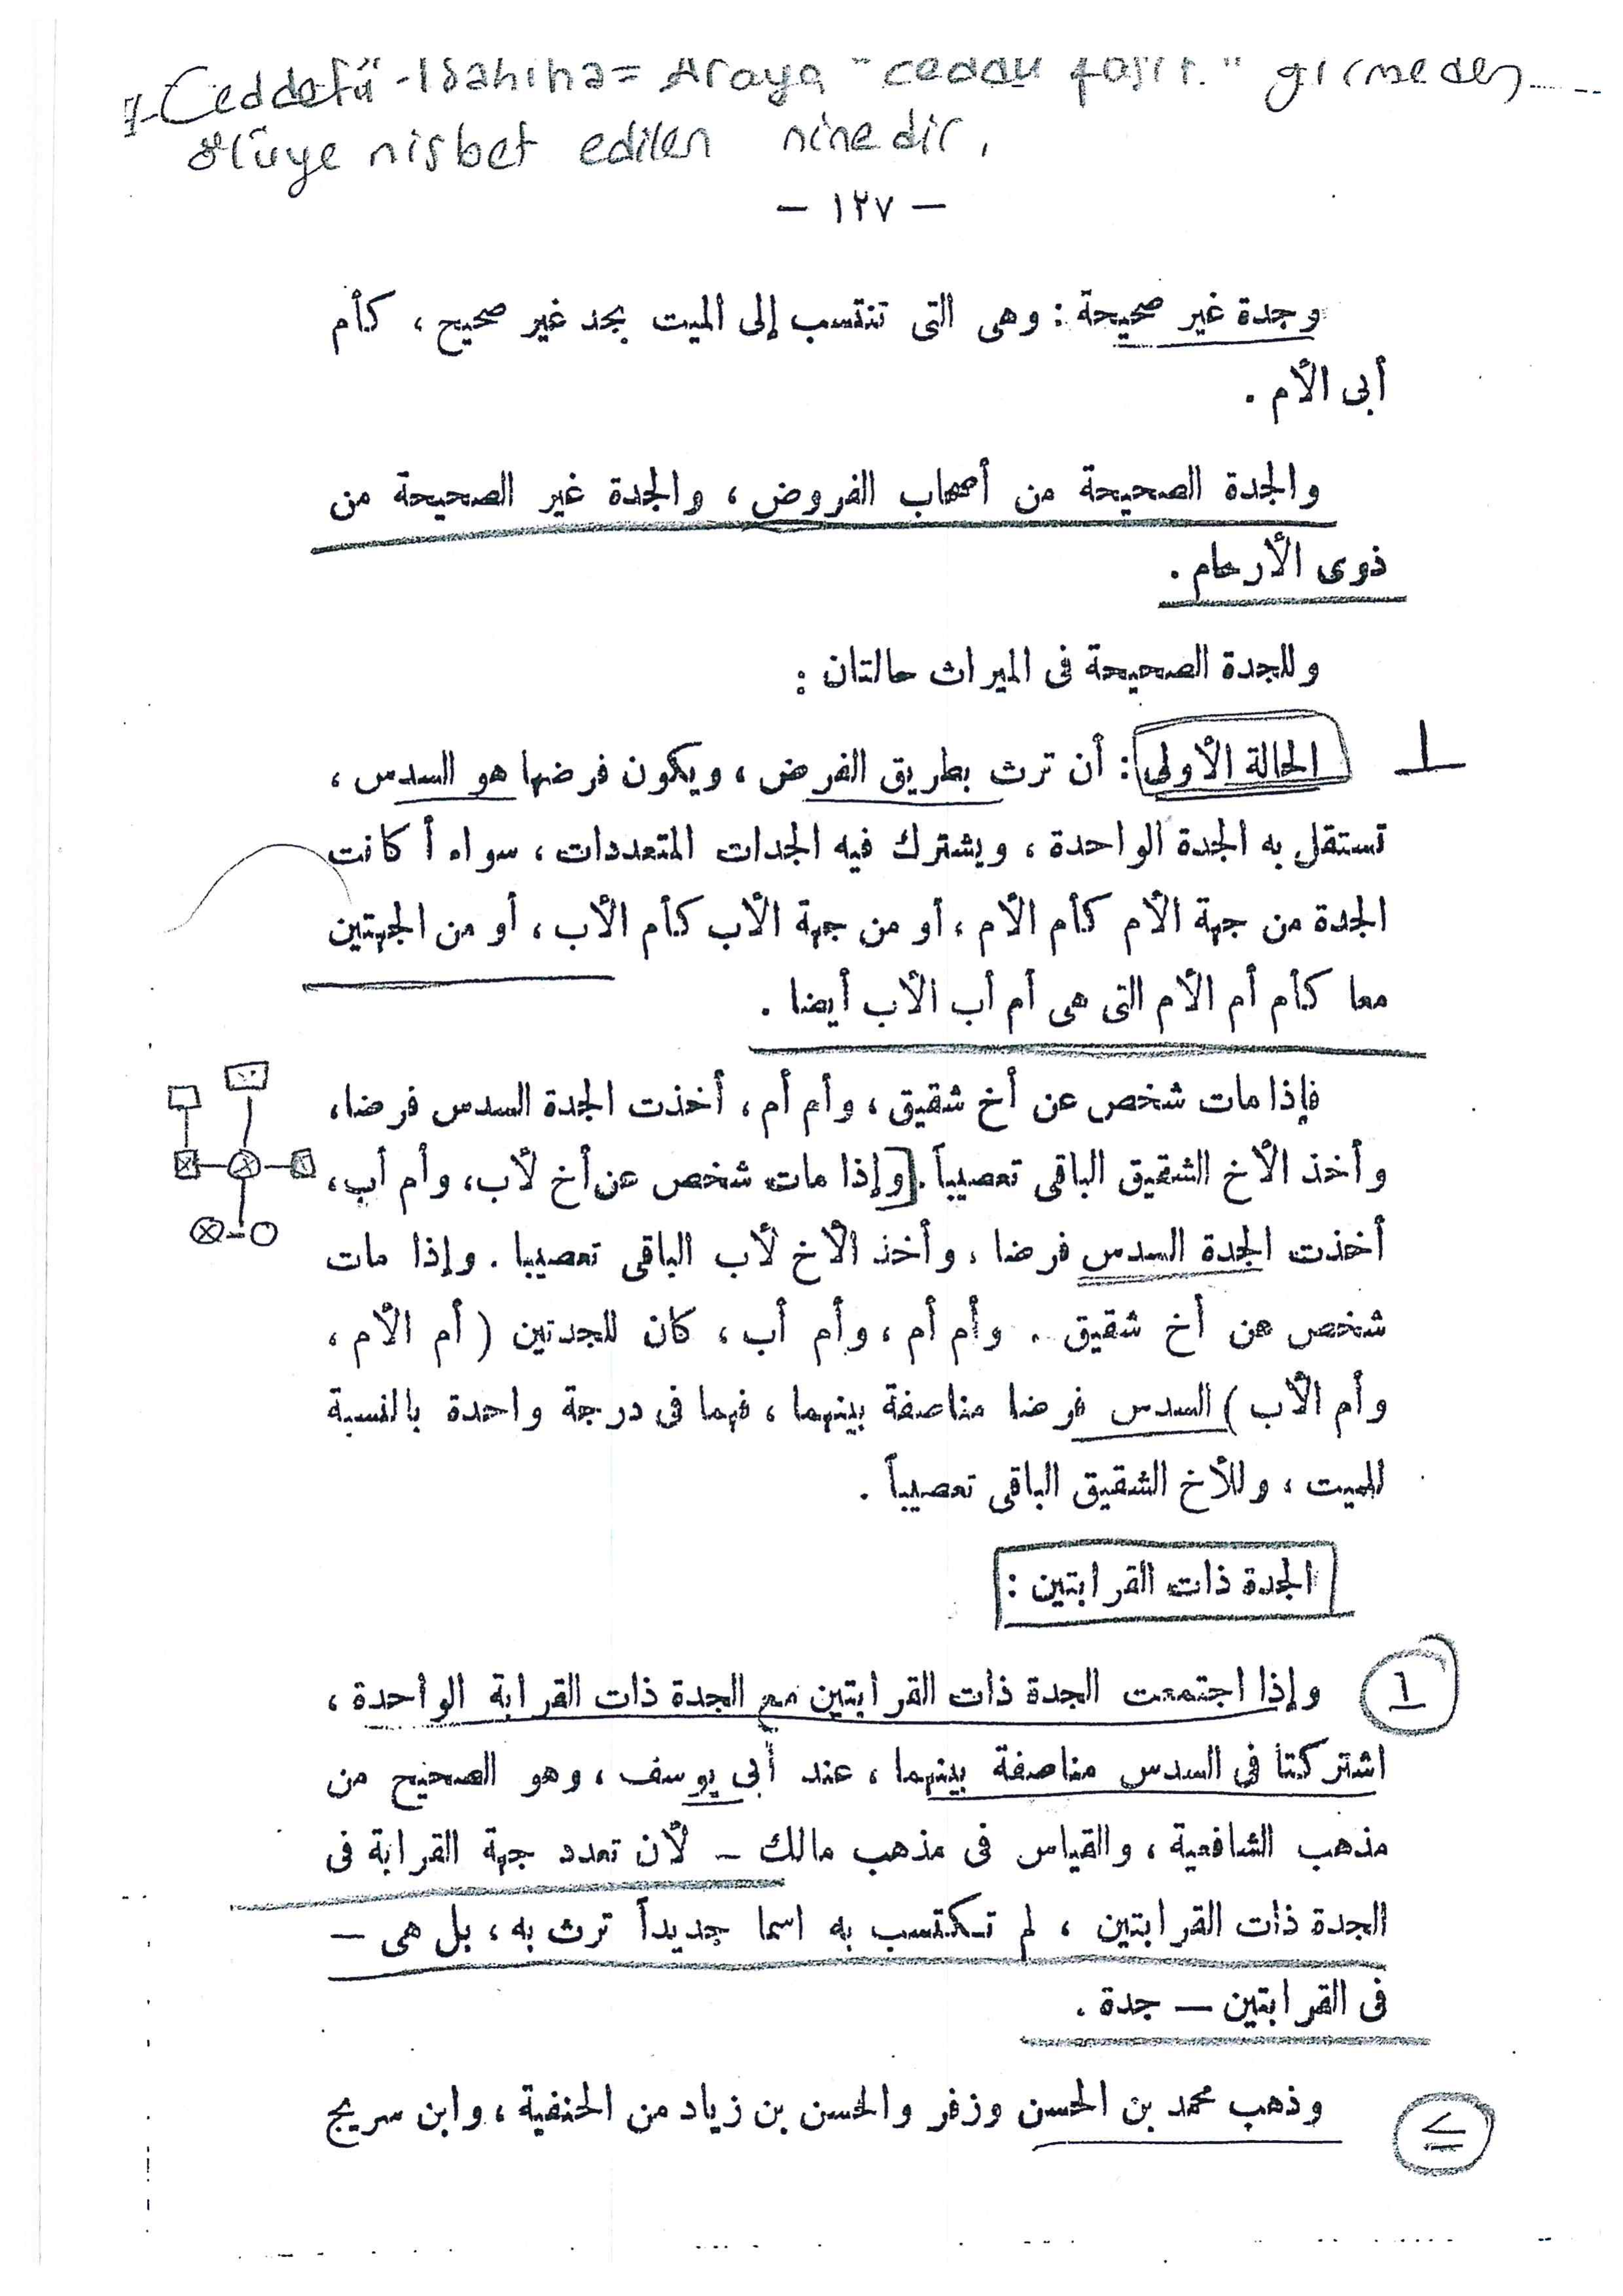 1- Ceddetü-lsahiha= Araya "ceddu fasit." girmeden
ölüye nisbet edilen ninedir.
— ١٢٧ —
وجدة غير صحيحة : وهى التى تنتسب إلى الميت بجد غير صحيح ، كأم
أبى الأم .
والجدة الصحيحة من أصحاب الفروض ، والجدة غير الصحيحة من
ذوى الأرحام .
وللجدة الصحيحة فى الميراث حالتان :
1
الحالة الأولى : أن ترث بطريق الفرض ، ويكون فرضها هو السدس ،
تستقل به الجدة الواحدة ، ويشترك فيه الجدات المتعددات ، سواء أكانت
الجدة من جهة الأم كأم الأم ، أو من جهة الأب كأم الأب ، أو من الجهتين
معا كأم أم الأم التى هى أم أب الأب أيضا .
فإذا مات شخص عن أخ شقيق ، وأم أم ، أخذت الجدة السدس فرضا ،
وأخذ الأخ الشقيق الباقى تعصيباً . [وإذا مات شخص عن أخ لأب ، وأم أب ،
أخذت الجدة السدس فرضا ، وأخذ الأخ لأب الباقى تعصيبا . وإذا مات
شخص عن أخ شقيق . وأم أم ، وأم أب ، كان للجدتين ( أم الأم ،
وأم الأب ) السدس فرضا مناصفة بينهما ، فهما فى درجة واحدة بالنسبة
للميت ، وللأخ الشقيق الباقى تعصيباً .
الجدة ذات القرابتين :
1
وإذا اجتمعت الجدة ذات القرابتين مع الجدة ذات القرابة الواحدة ،
اشتركتا فى السدس مناصفة بينهما ، عند أبى يوسف ، وهو الصحيح من
مذهب الشافعية ، والقياس فى مذهب مالك – لأن تعدد جهة القرابة فى
الجدة ذات القرابتين ، لم تكتسب به اسما جديداً ترث به ، بل هى —
فى القرابتين — جدة .
وذهب محمد بن الحسن وزفر والحسن بن زياد من الحنفية ، وابن سريج